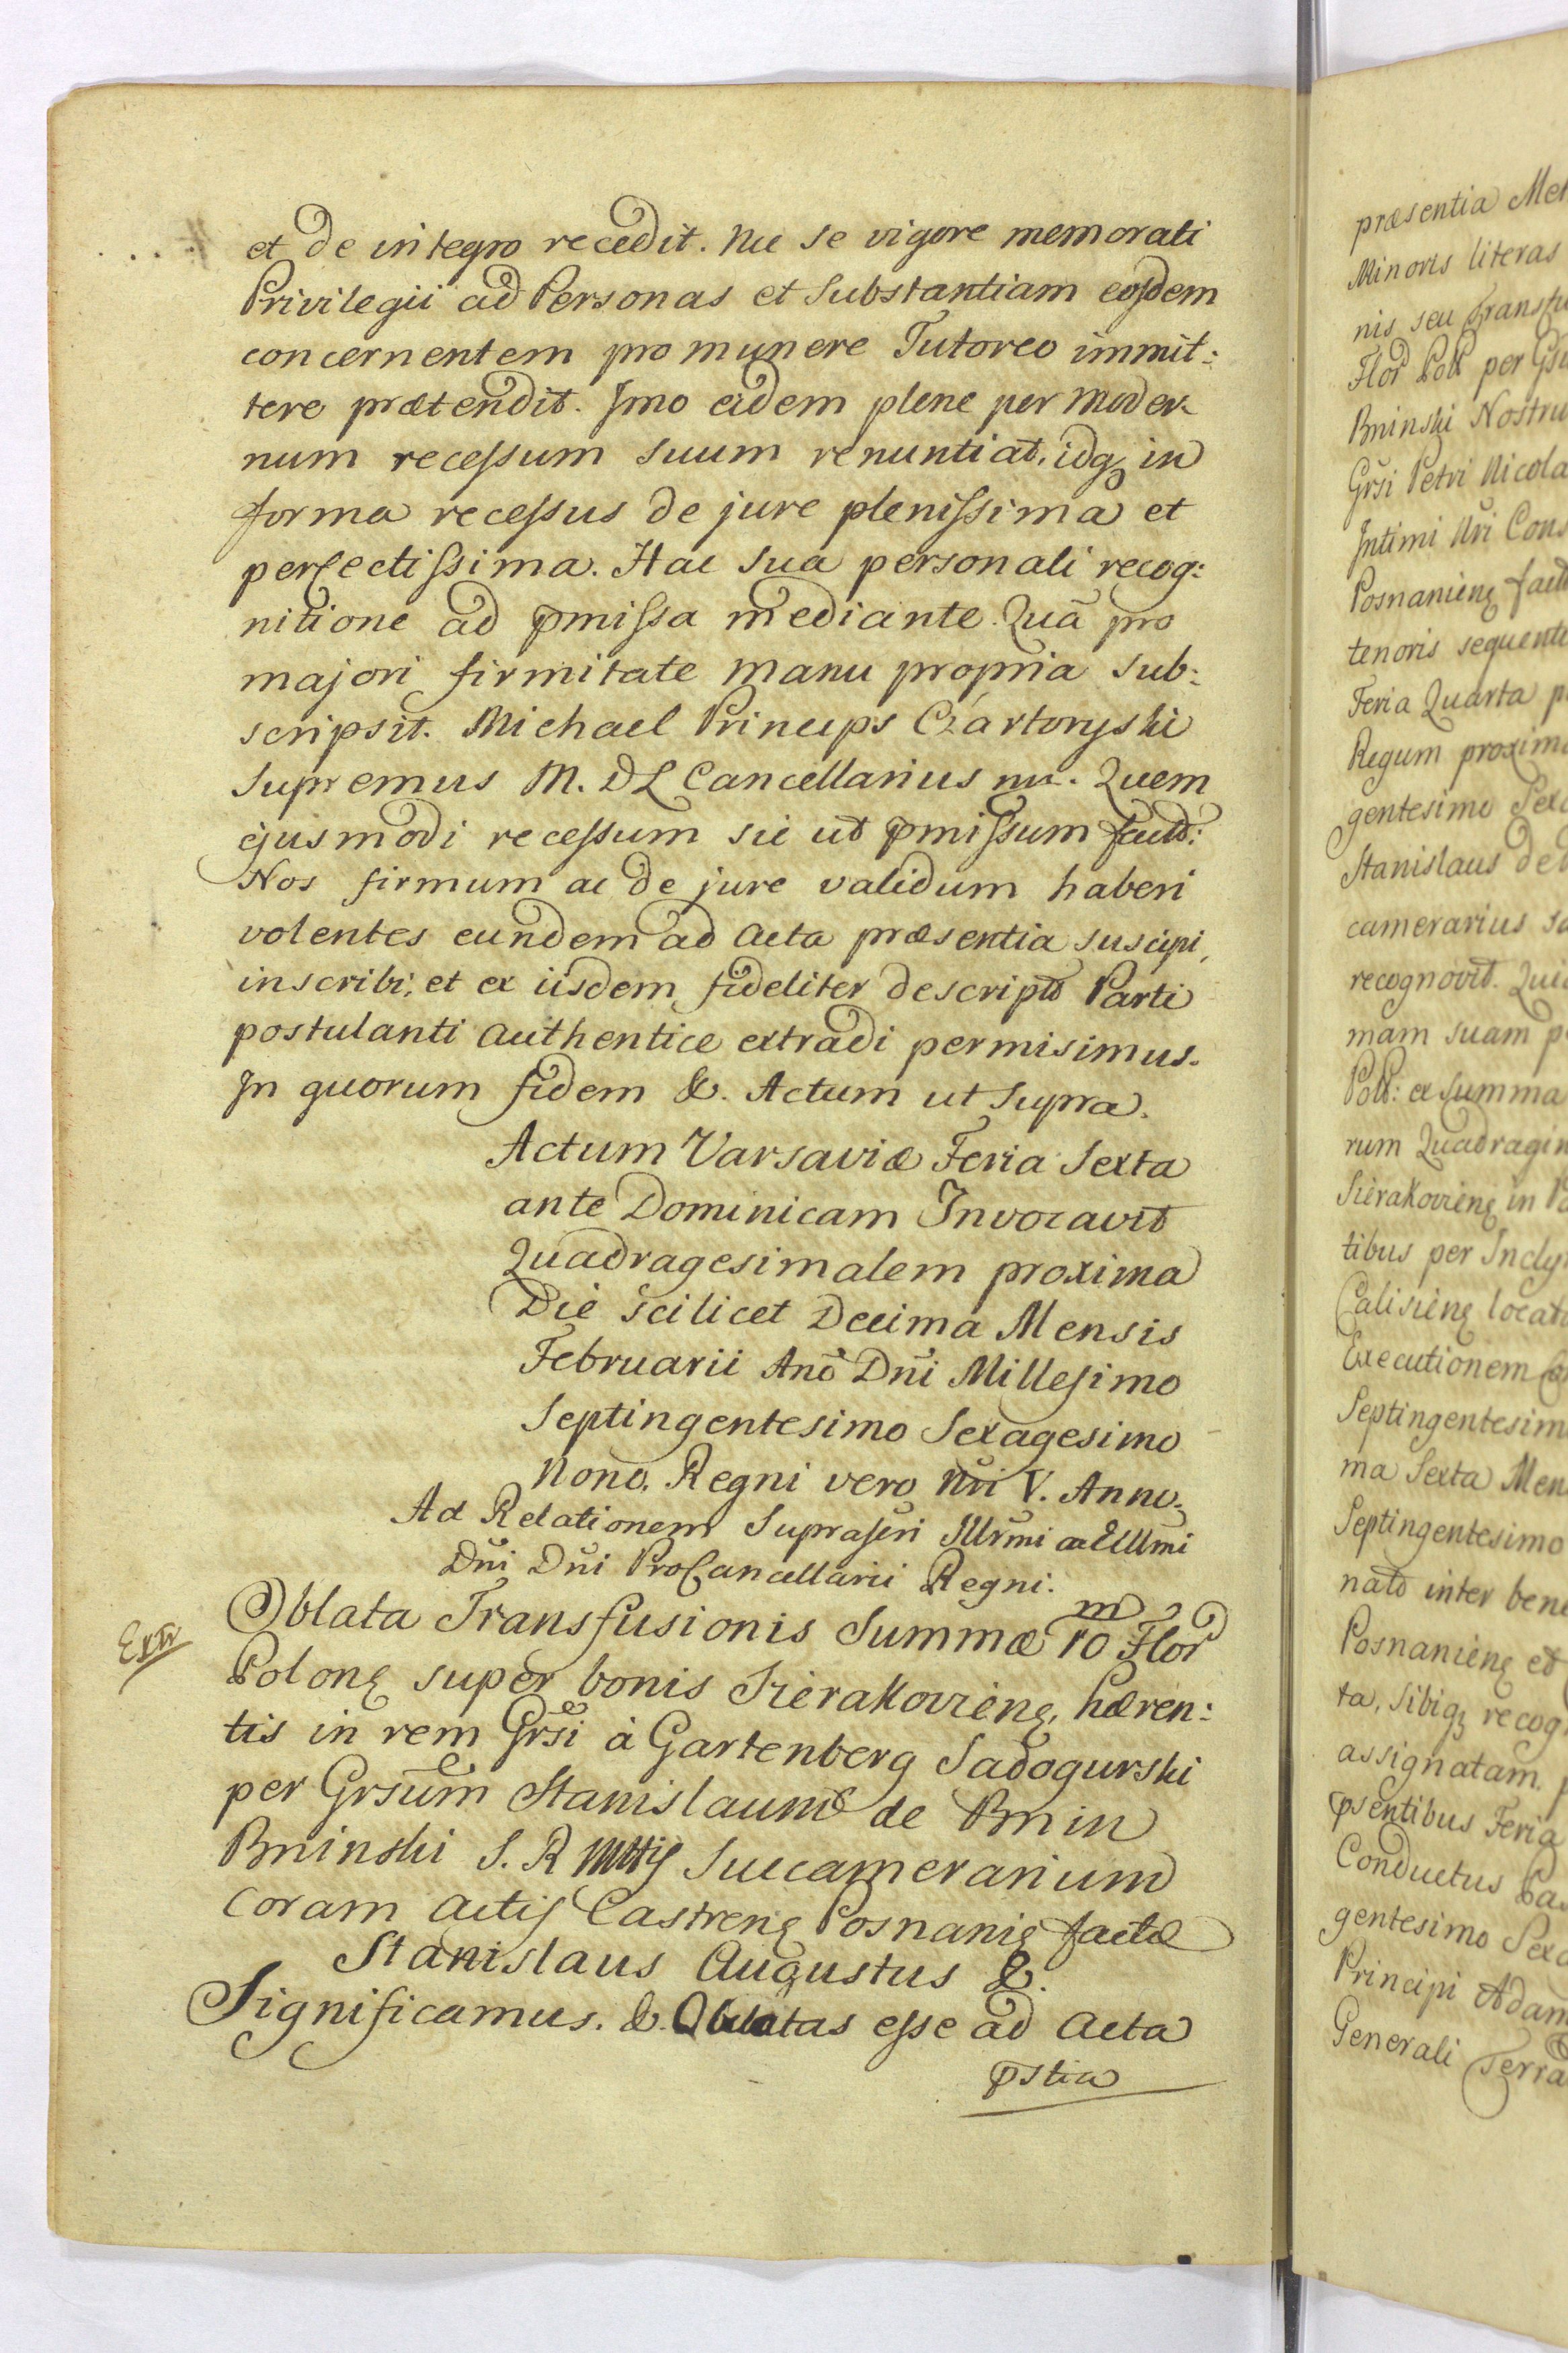 et de integro recedit. nec se vigore memorati
Privilegii ad Personas et Substantiam eosdem
concernentem pro munere Tutoreo immit:
tere prætendit. Imo eidem plene per moder-
num recessum suum renuntiat, idq, in
forma recessus de jure plenissima et
perfectissima. Hac sua personali recog:
nitione ad pmissa mediante. Quā pro
majori firmitate manu propria sub:
scripsit. Michael Princeps Czartoryski
Supremus M. D L Cancellarius mp. Quem
ejusmodi recessum sic ut pmissum fact:
Nos firmum ac de jure validum haberi
volentes eundem ad Acta præsentia suscipi,
inscribi, et ex iisdem fideliter descript Parti
postulanti authentice extradi permisimus.
In quorum fidem &. Actum ut Supra.
Actum Varsaviæ Feria Sexta
ante Dominicam Invocavit
Quadragesimalem proxima
Die scilicet Decima Mensis
Februarii Anō Dnī Millesimo
Septingentesimo Sexagesimo
Nono. Regni vero Nri V. Anno
Ad Relationem Suprascri Illrmi ac Exllmi
Dni Dni ProCancellarii Regni.
Extr
Oblata Transfusionis Summæ 10 m Flor
Polonę super bonis Sierakovienę, hæren:
tis in rem Grsi à Gartenberg Sadogurski
per Grsum Stanislaum de Bnin
Bninski S. R Mttis Succamerarium
coram actis Castrenę Posnanię factæ
Stanislaus Augustus &.
Significamus. &. Oblatas esse ad Acta
pstia
præsentia
Minoris literas
nis seu
Flor Pol per
Bninski
Petri
Intimi Nri
Posnanienę
tenoris
Feria Quarta
Regum
gentesimo
Stanislaus de
camerarius
recognovit.
mam suam
Pol: ex Summa
rum
Sierakovienę in
tibus per
Calisienę
Executionem
ma Sexta
Septingentesimo
nato inter
Posnanienę et
ta, sibiq,
assignatam.
psentibus Feria
Conductus
gentesimo
Principi
Generali